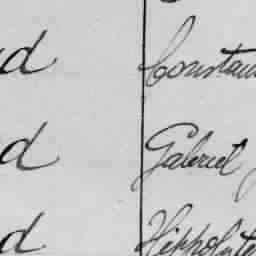 d Constan
d Gabriel
d Hippolyte